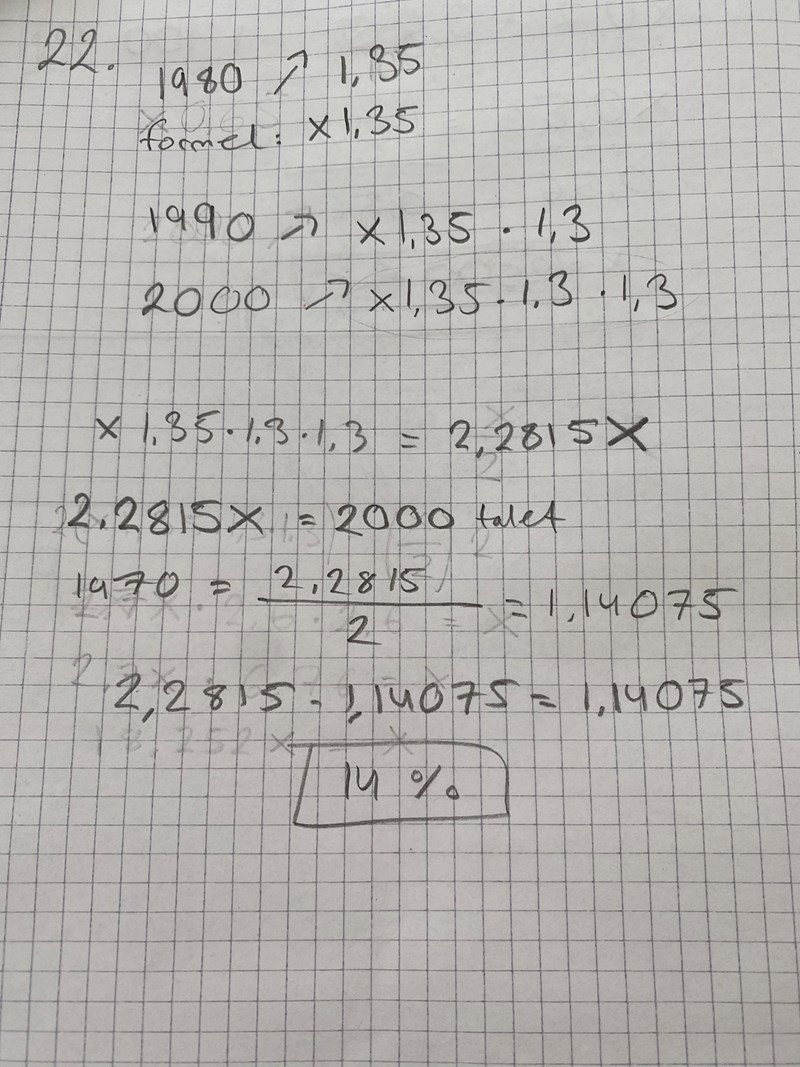 22.
1980 ↗ 1,35
formel: x1,35
1990 ↗ x1,35 · 1,3
2000 ↗ x1,35 · 1,3 · 1,3
x 1,35 · 1,3 · 1,3 = 2,2815X
2.2815X = 2000 talet
1970 = 2,2815 / 2 = 1,14075
2,2815 - 1,14075 = 1,14075
14 %